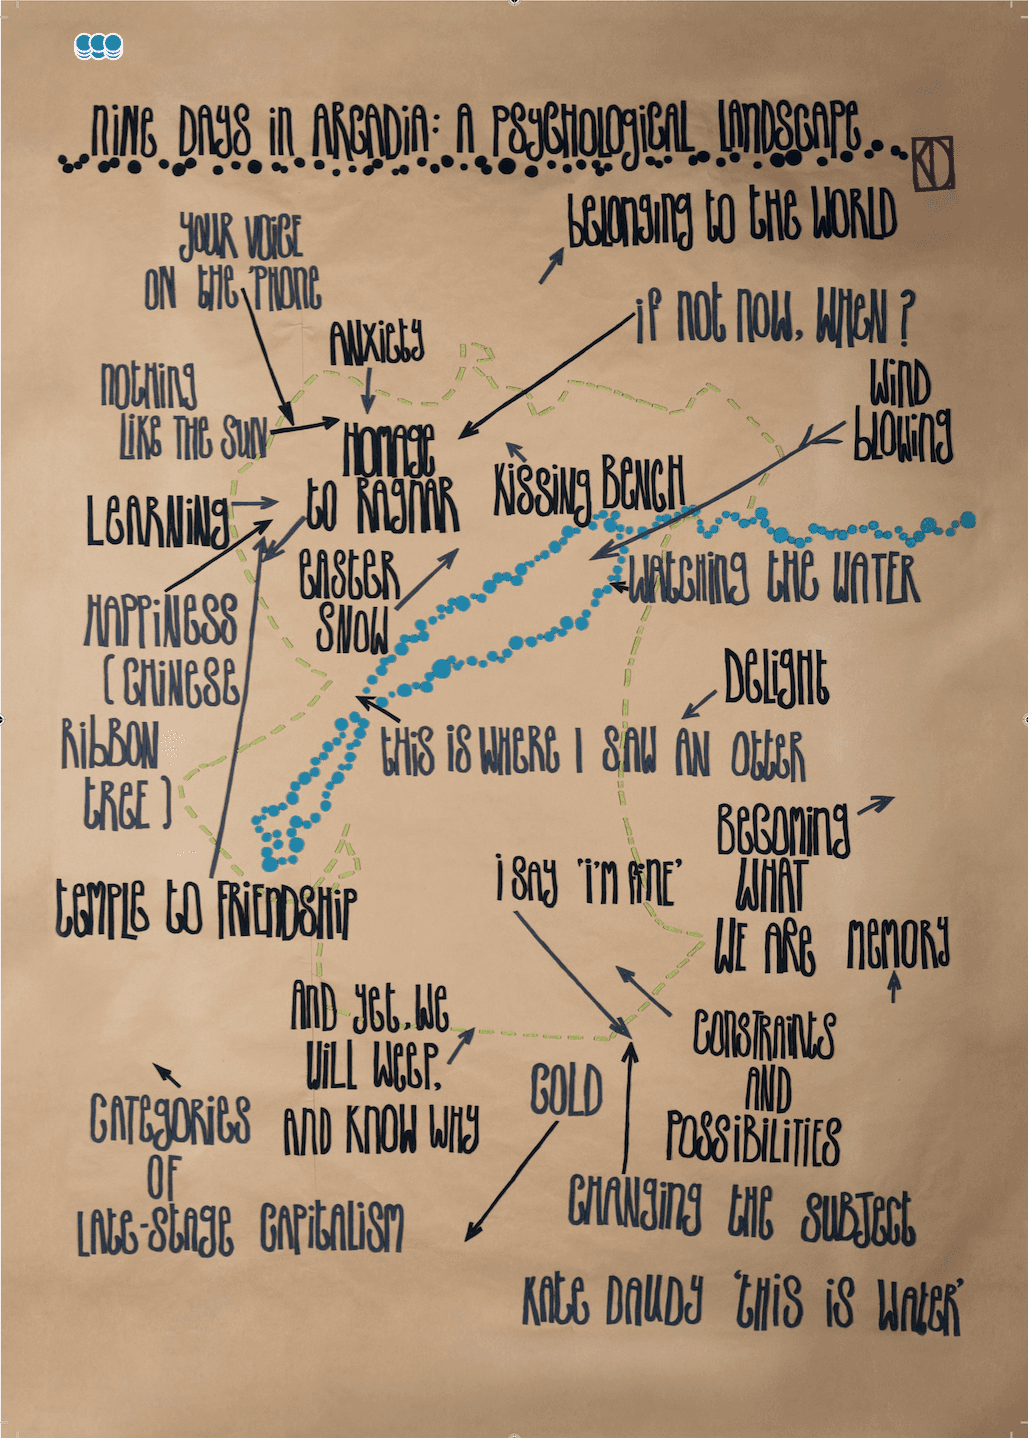 NINE DAYS IN ARCADIA: A PSYCHOLOGICAL LANDSCAPE
KD
BELONGING TO THE WORLD
YOUR VOICE
ON THE 'PHONE
IF NOT NOW, WHEN?
ANXIETY
NOTHING
LIKE THE SUN
WIND
BLOWING
HOMAGE
TO RAGNAR
KISSING BENCH
LEARNING
EASTER
SNOW
WATCHING THE WATER
HAPPINESS
(CHINESE
RIBBON
TREE)
DELIGHT
THIS IS WHERE I SAW AN OTTER
BECOMING
WHAT
WE ARE
MEMORY
I SAY 'I'M FINE'
TEMPLE TO FRIENDSHIP
AND YET, WE
WILL WEEP,
AND KNOW WHY
CONSTRAINTS
AND
POSSIBILITIES
COLD
CATEGORIES
OF
LATE-STAGE CAPITALISM
CHANGING THE SUBJECT
KATE DAUDY 'THIS IS WATER'